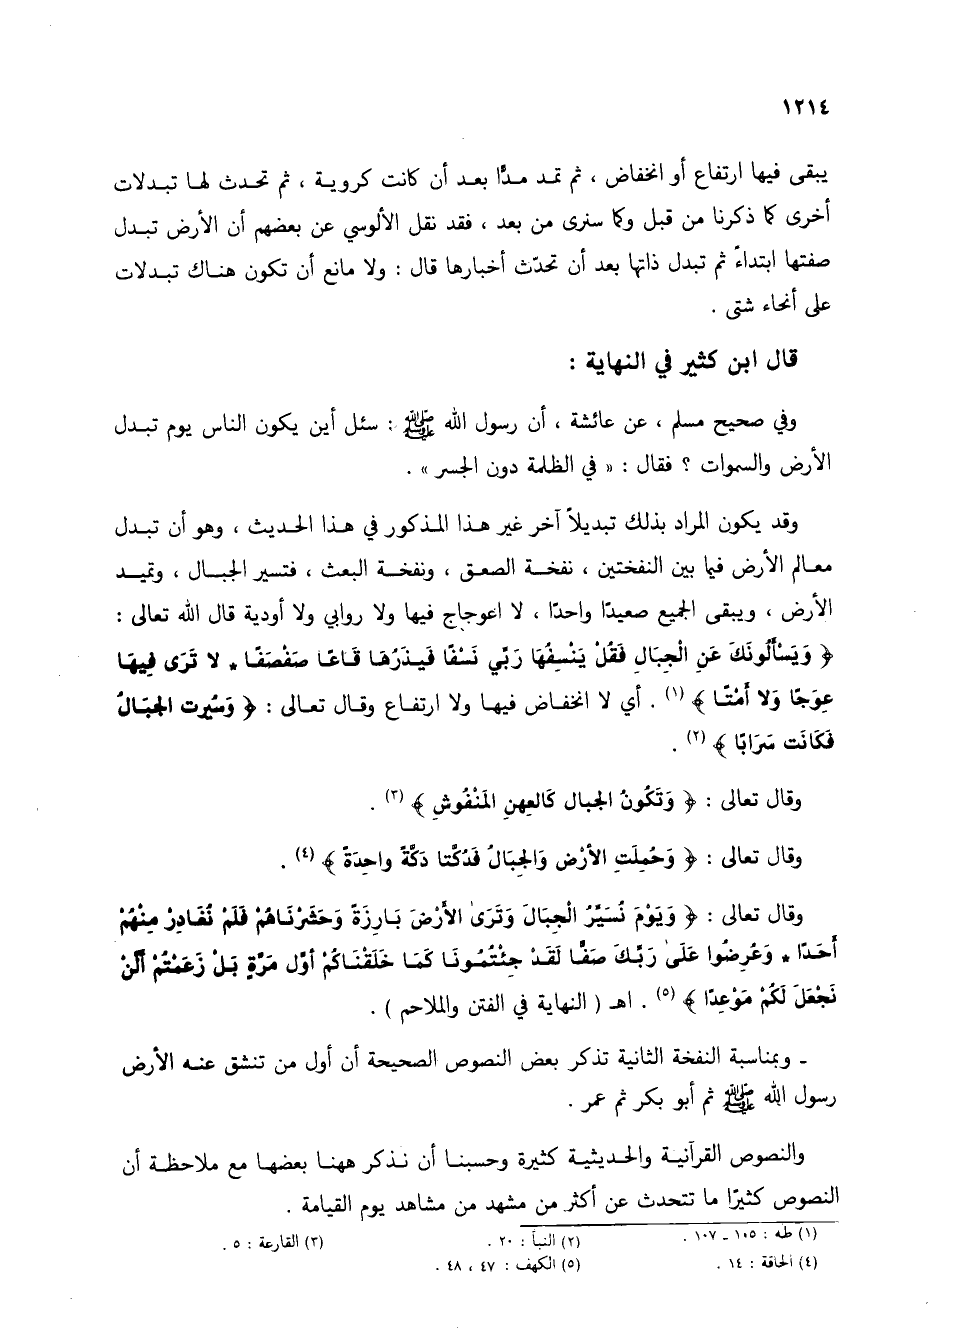 ١٢١٤
يبقى فيها ارتفاع أو انخفاض ، ثم تمد مدًّا بعد أن كانت كروية ، ثم تحدث لها تبدلات
أخرى كما ذكرنا من قبل وكما سنرى من بعد ، فقد نقل الألوسي عن بعضهم أن الأرض تبدل
صفتها ابتداءً ثم تبدل ذاتها بعد أن تحدّث أخبارها قال : ولا مانع أن تكون هناك تبدلات
على أنحاء شتى .
قال ابن كثير في النهاية :
وفي صحيح مسلم ، عن عائشة ، أن رسول الله ﷺ : سئل أين يكون الناس يوم تبدل
الأرض والسموات ؟ فقال : « في الظلمة دون الجسر » .
وقد يكون المراد بذلك تبديلاً آخر غير هذا المذكور في هذا الحديث ، وهو أن تبدل
معالم الأرض فيما بين النفختين ، نفخة الصعق ، ونفخة البعث ، فتسير الجبال ، وتميد
الأرض ، ويبقى الجميع صعيدًا واحدًا ، لا اعوجاج فيها ولا روابي ولا أودية قال الله تعالى :
﴿ وَيَسْأَلُونَكَ عَنِ الْجِبَالِ فَقُلْ يَنْسِفُهَا رَبِّي نَسْفًا فَيَذَرُهَا قَاعًا صَفْصَفًا * لا تَرَى فِيهَا
عِوَجًا وَلا أَمْتًا ﴾ (١) . أي لا انخفاض فيها ولا ارتفاع وقال تعالى : ﴿ وَسُيرت الجبَالُ
فَكَانَت سَرَابًا ﴾ (٢) .
وقال تعالى : ﴿ وَتَكُونُ الجبال كَالعِهنِ المَنْفُوشِ ﴾ (٣) .
وقال تعالى : ﴿ وَحُملَتِ الأرْض وَالجِبَالُ فَدُكَّتا دَكَّةً واحِدَةً ﴾ (٤) .
وقال تعالى : ﴿ وَيَوْمَ نُسَيِّرُ الْجِبَالَ وَتَرَى الأَرْضَ بَارِزَةً وَحَشَرْنَاهُمْ فَلَمْ نُغَادِرْ مِنْهُمْ
أَحَدًا * وَعُرِضُوا عَلَى رَبِّكَ صَفًّا لَقَدْ جِئْتُمُونَا كَمَا خَلَقْنَاكُمْ أَوَّل مَرَّةٍ بَلْ زَعَمْتُمْ أَلَّنْ
نَجْعَلَ لَكُمْ مَوْعِدًا ﴾ (٥) . اهـ ( النهاية في الفتن والملاحم ) .
ـ وبمناسبة النفخة الثانية تذكر بعض النصوص الصحيحة أن أول من تنشق عنه الأرض
رسول الله ﷺ ثم أبو بكر ثم عمر .
والنصوص القرآنية والحديثية كثيرة وحسبنا أن نذكر ههنا بعضها مع ملاحظة أن
النصوص كثيرًا ما تتحدث عن أكثر من مشهد من مشاهد يوم القيامة .
(١) طه : ١٠٥ ـ ١٠٧ . (٢) النبأ : ٢٠ . (٣) القارعة : ٥ .
(٤) الحاقة : ١٤ . (٥) الكهف : ٤٧ ، ٤٨ .